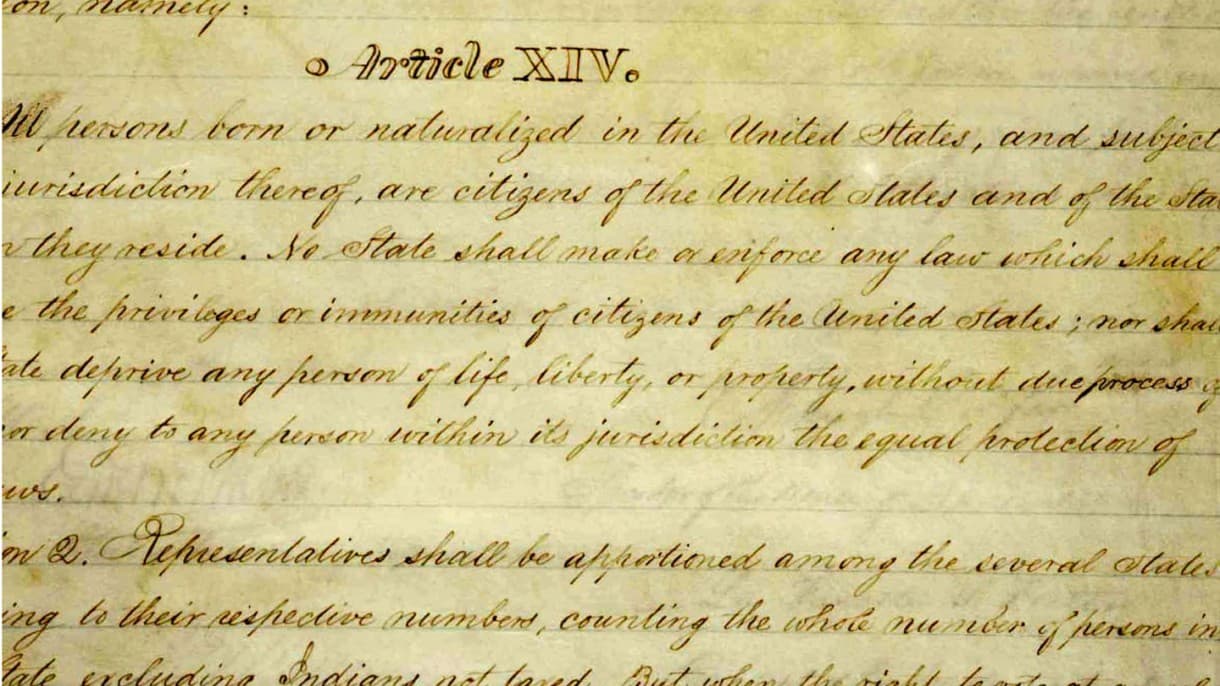 on, namely:
Article XIV.
All persons born or naturalized in the United States, and subject
jurisdiction thereof, are citizens of the United States and of the Sta
n they reside. No State shall make or enforce any law which shall
e the privileges or immunities of citizens of the United States; nor shall
ate deprive any person of life, liberty, or property, without due process of
or deny to any person within its jurisdiction the equal protection of
ws.
on 2. Representatives shall be apportioned among the several States
ing to their respective numbers, counting the whole number of persons in
tate excluding Indians not taxed. But when the right to vote at